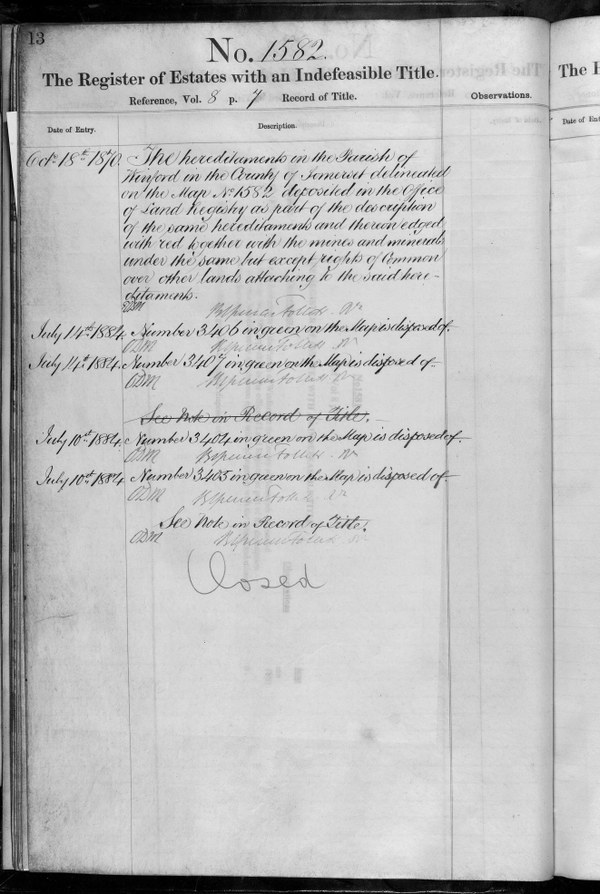 13
No. 1582.
The Register of Estates with an Indefeasible Title.
Reference, Vol. 8 p. 7 Record of Title.
Observations.
Date of Entry.
Description.
Octr. 18th 1870. The hereditaments in the Parish of
Winford in the County of Somerset delineated
on the Map No 1582 deposited in the Office
of Land Registry as part of the description
of the same hereditaments and thereon edged
with red together with the mines and minerals
under the same but except rights of Common
over other lands attaching to the said here-
ditaments.
ODM
July 14th 1884. Number 3406 in green on the Map is disposed of.
ODM
July 14th 1884. Number 3407 in green on the Map is disposed of.
ODM
See Note in Record of Title.
July 10th 1884. Number 3404 in green on the Map is disposed of.
ODM
July 10th 1884. Number 3405 in green on the Map is disposed of.
ODM
See Note in Record of Title.
ODM
Closed
The
Date of Ent